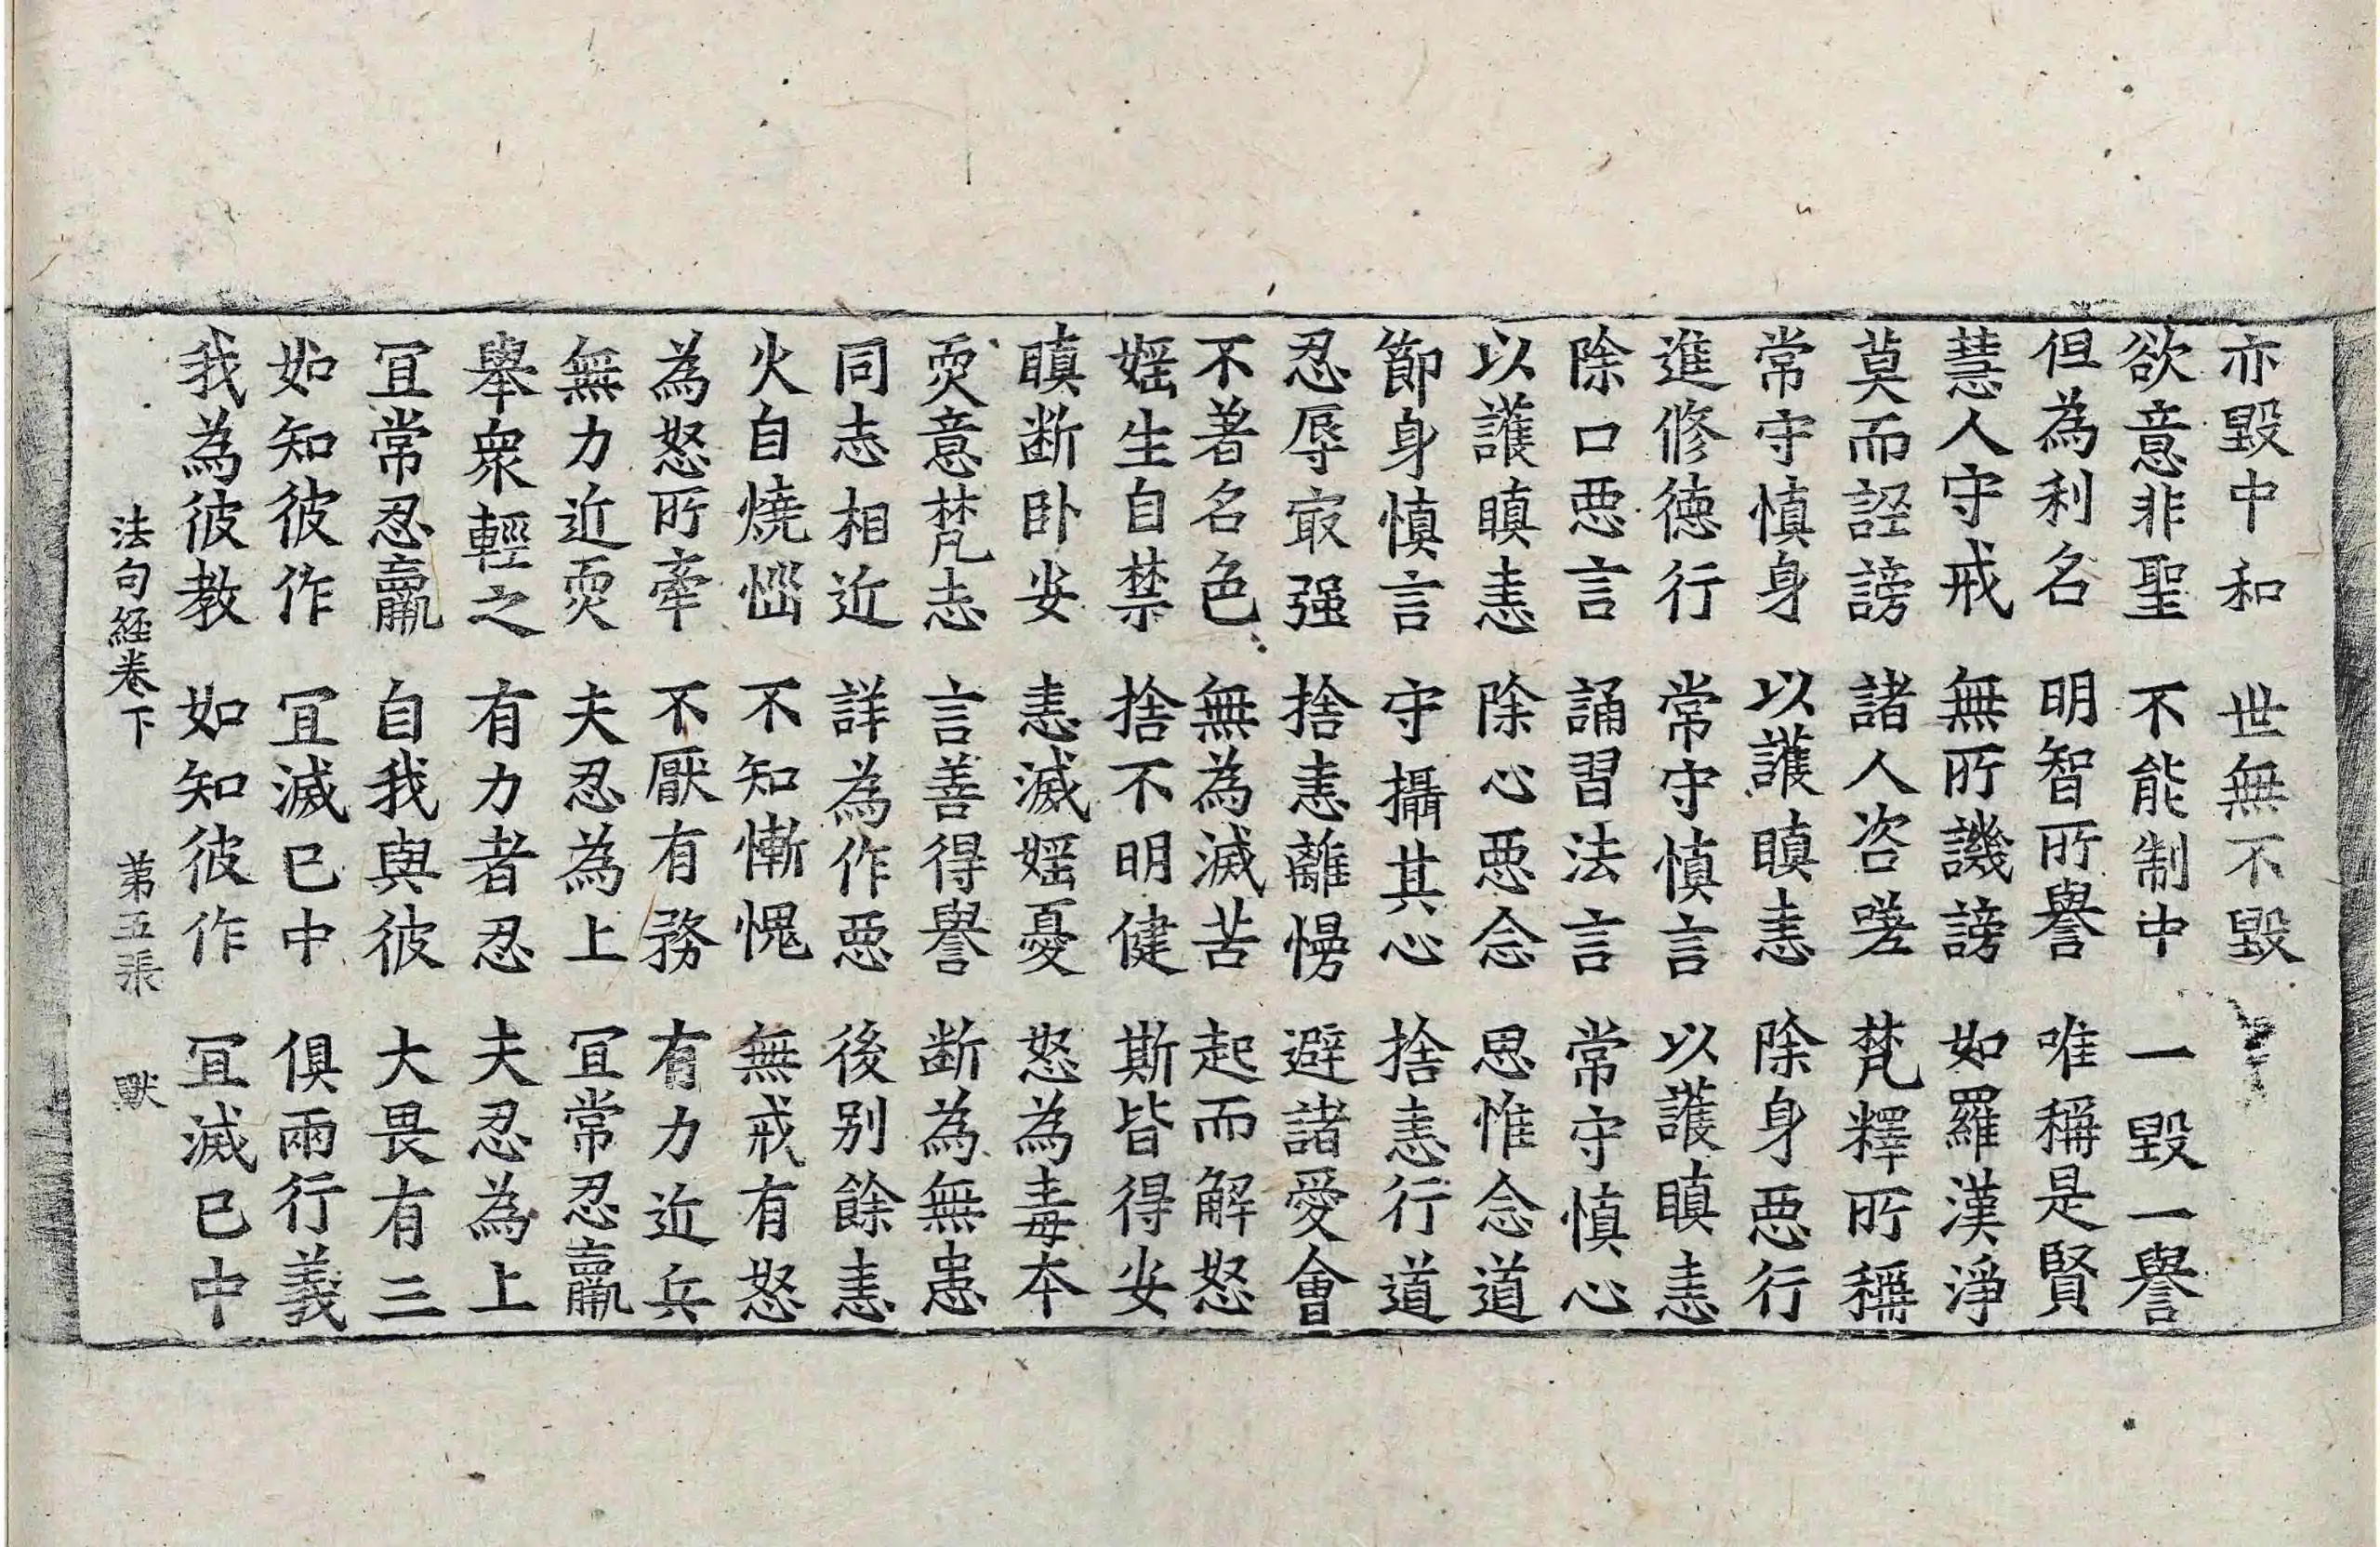 亦毀中和 世無不毀
欲意非聖 不能制中 一毀一譽
但為利名 明智所譽 唯稱是賢
慧人守戒 無所譏謗 如羅漢淨
莫而誣謗 諸人咨嗟 梵釋所稱
常守慎身 以護瞋恚 除身惡行
進修德行 常守慎言 以護瞋恚
除口惡言 誦習法言 常守慎心
以護瞋恚 除心惡念 思惟念道
節身慎言 守攝其心 捨恚行道
忍辱㝡强 捨恚離慢 避諸愛會
不著名色 無為滅苦 起而解怒
婬生自禁 捨不明健 斯皆得安
瞋断卧安 恚滅婬憂 怒為毒本
耎意梵志 言善得譽 断為無患
同志相近 詳為作惡 後别餘恚
火自燒惱 不知慚愧 無戒有怒
為怒所牽 不厭有務 有力近兵
無力近耎 夫忍為上 冝常忍羸
舉衆輕之 有力者忍 夫忍為上
冝常忍羸 自我與彼 大畏有三
如知彼作 冝滅己中 俱兩行義
我為彼教 如知彼作 冝滅己中
法句經卷下 第五張 默